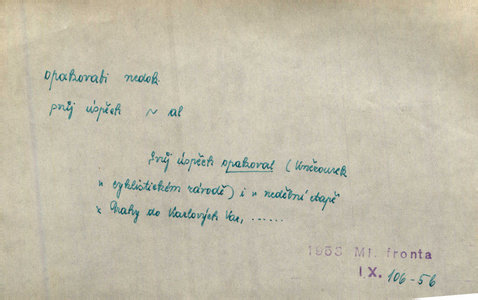 opakovati nedok.
svůj úspěch ~ al
Svůj úspěch opakoval (Kněžourek
v cyklistickém závodě) i v nedělní etapě
z Prahy do Karlových Var, ......
1955 Ml. fronta
IX. 106-56